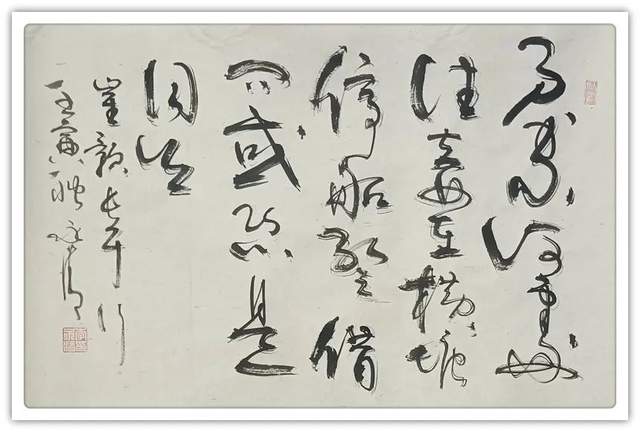 君家何處
住妾在橫塘
停船暫借
問或恐是
同鄉
崔顥長干行
壬寅